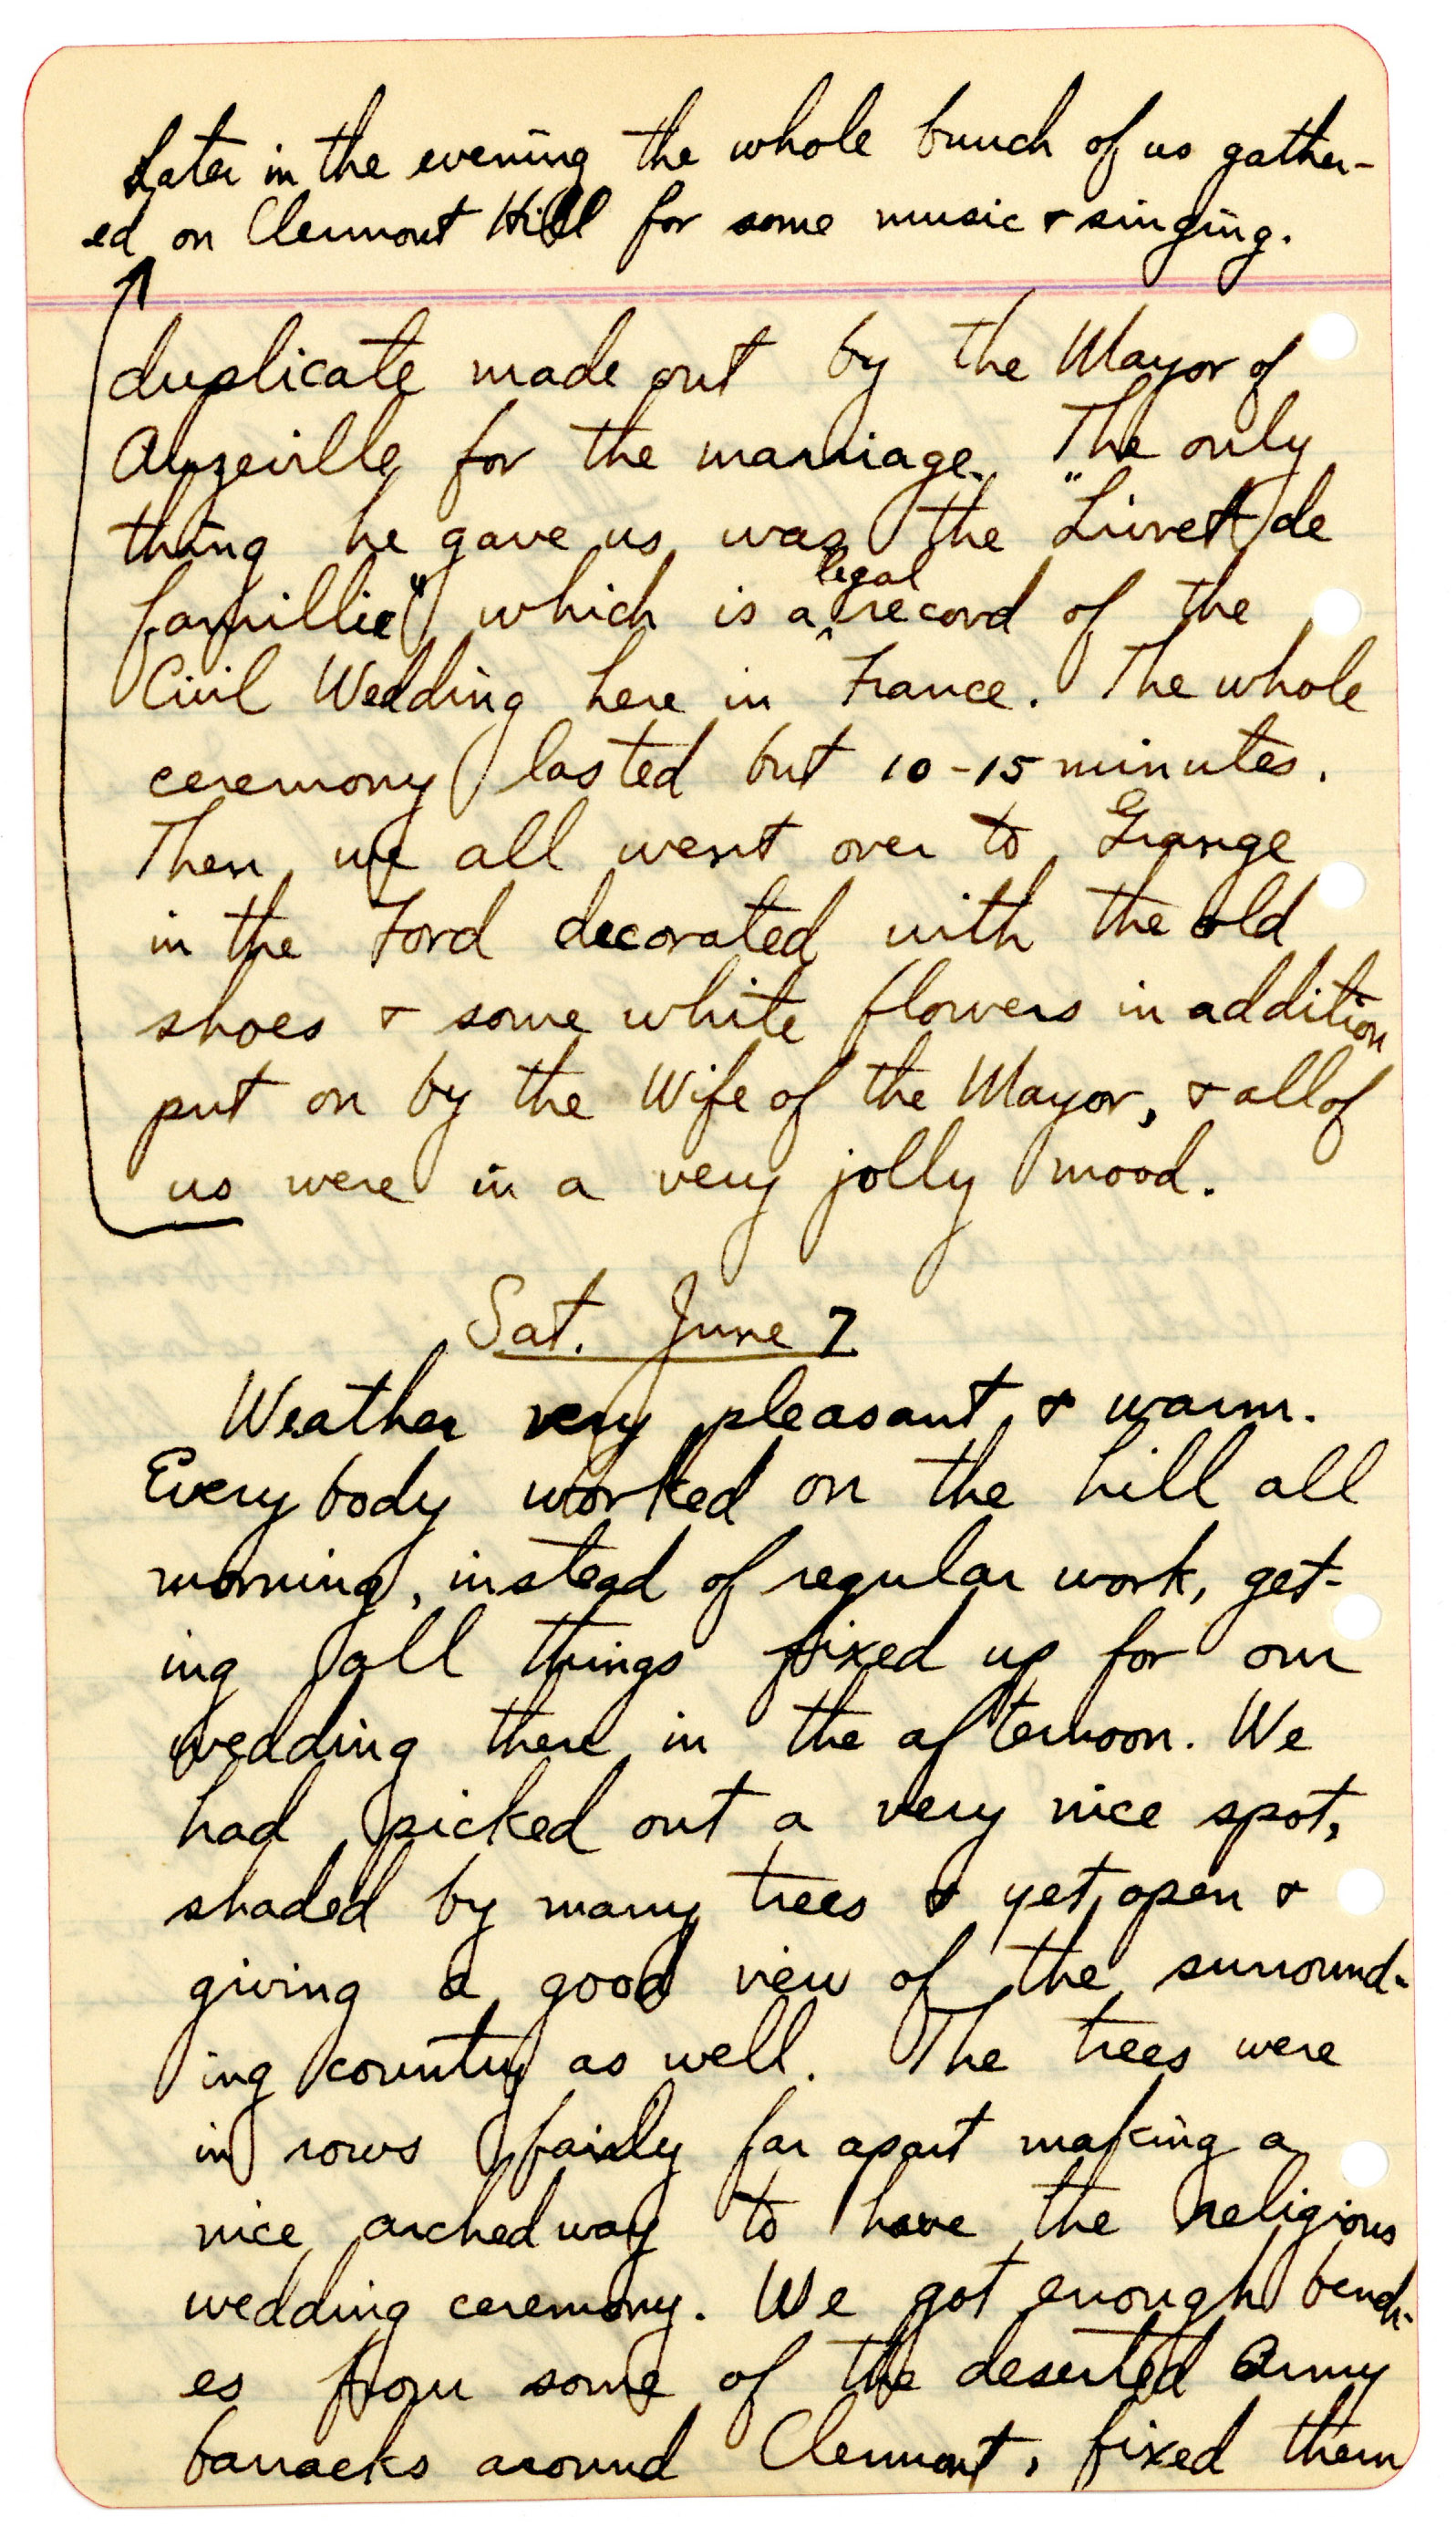 Later in the evening the whole bunch of us gather-
ed on Clermont Hill for some music & singing.
duplicate made out by the Mayor of
Auzeville for the marriage. The only
thing he gave us was the "Livret de
famillie" which is a legal record of the
Civil Wedding here in France. The whole
ceremony lasted but 10-15 minutes.
Then we all went over to Grange
in the Ford decorated with the old
shoes & some white flowers in addition
put on by the Wife of the Mayor, & all of
us were in a very jolly mood.
Sat. June 7
Weather very pleasant & warm.
Everybody worked on the hill all
morning, instead of regular work, get-
ing all things fixed up for our
wedding there in the afternoon. We
had picked out a very nice spot,
shaded by many trees & yet open &
giving a good view of the surround-
ing country as well. The trees were
in rows fairly far apart making a
nice archedway to have the religious
wedding ceremony. We got enough bench-
es from some of the deserted Army
barracks around Clermont, fixed them